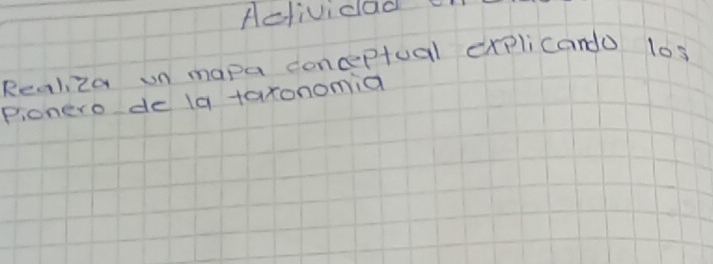 Actividad
Realiza un mapa conceptual explicando los
Pionero de la taxonomia